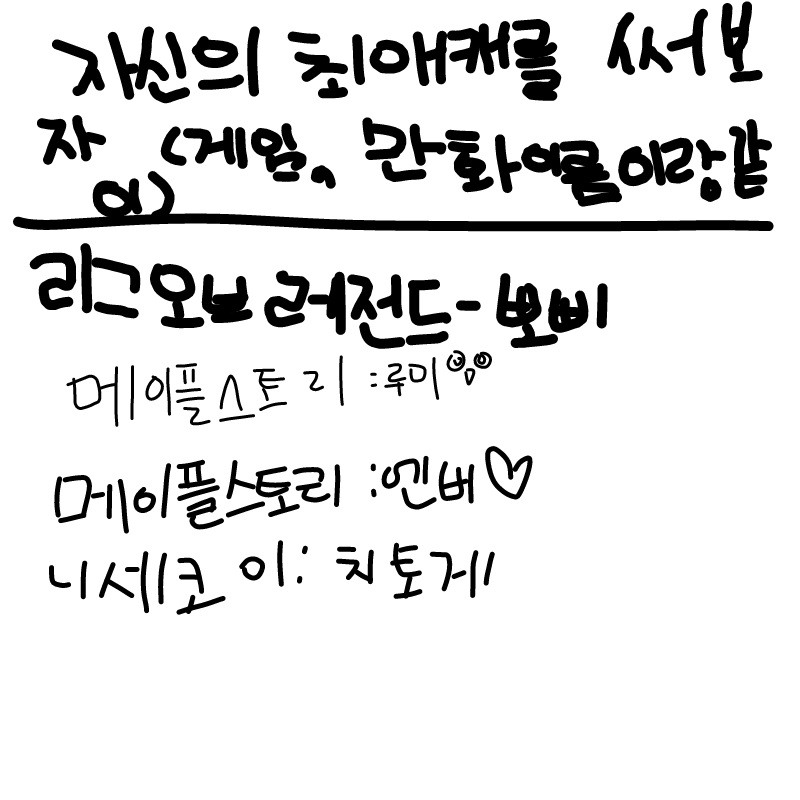 자신의 최애캐를 써보
자 (게임, 만화이름이랑같
이)
리그오브레전드-뽀삐
메이플스토리:루미
메이플스토리:엔버♡
니세코이:치토게